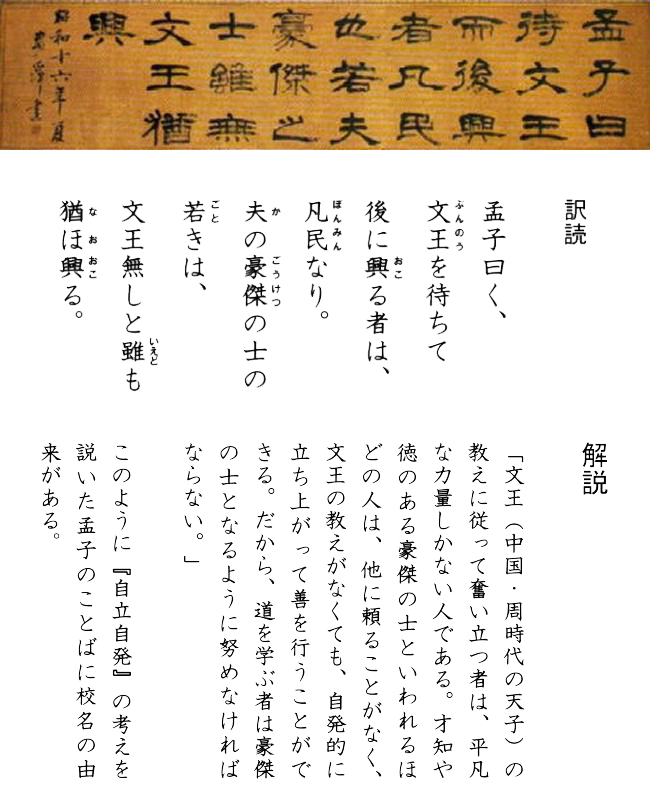 孟子曰
待文王
而後興
者凡民
也若夫
豪傑之
士雖無
文王猶
興
昭和十六年夏
訳読
孟子曰く、
ぶんのう
文王を待ちて
おこ
後に興る者は、
ぼんみん
凡民なり。
か ごうけつ
夫の豪傑の士の
ごと
若きは、
いえど
文王無しと雖も
なお おこ
猶ほ興る。
解説
「文王（中国・周時代の天子）の
教えに従って奮い立つ者は、平凡
な力量しかない人である。才知や
徳のある豪傑の士といわれるほ
どの人は、他に頼ることがなく、
文王の教えがなくても、自発的に
立ち上がって善を行うことがで
きる。だから、道を学ぶ者は豪傑
の士となるように努めなければ
ならない。」
このように『自立自発』の考えを
説いた孟子のことばに校名の由
来がある。